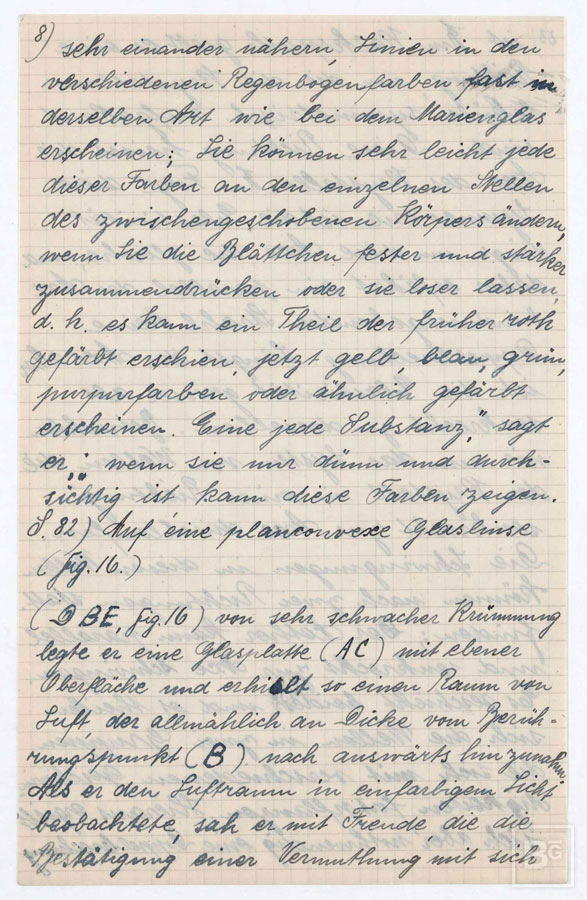 8)
sehr einander nähern, Linien in den
verschiedenen Regenbogenfarben fast in
derselben Art wie bei dem Marienglas
erscheinen; Sie können sehr leicht jede
dieser Farben an den einzelnen Stellen
des zwischengeschobenen Körpers ändern,
wenn Sie die Blättchen fester und stärker
zusammendrücken oder sie loser lassen,
d. h. es kann ein Theil der früher roth
gefärbt erschien, jetzt gelb, blau, grün,
purpurfarben oder ähnlich gefärbt
erscheinen. Eine jede Substanz," sagt
er, "wenn sie nur dünn und durch-
sichtig ist, kann diese Farben zeigen."
S. 82) Auf eine planconvexe Glaslinse
(fig. 16.)
(DBE, fig. 16) von sehr schwacher Krümmung
legte er eine Glasplatte (AC) mit ebener
Oberfläche und erhielt so einen Raum von
Luft, der allmählich an Dicke vom Berüh-
rungspunkt (B) nach auswärts hin zunahm.
Als er den Luftraum in einfarbigem Licht
beobachtete, sah er mit Freude, die die
Bestätigung einer Vermuthung mit sich
BG